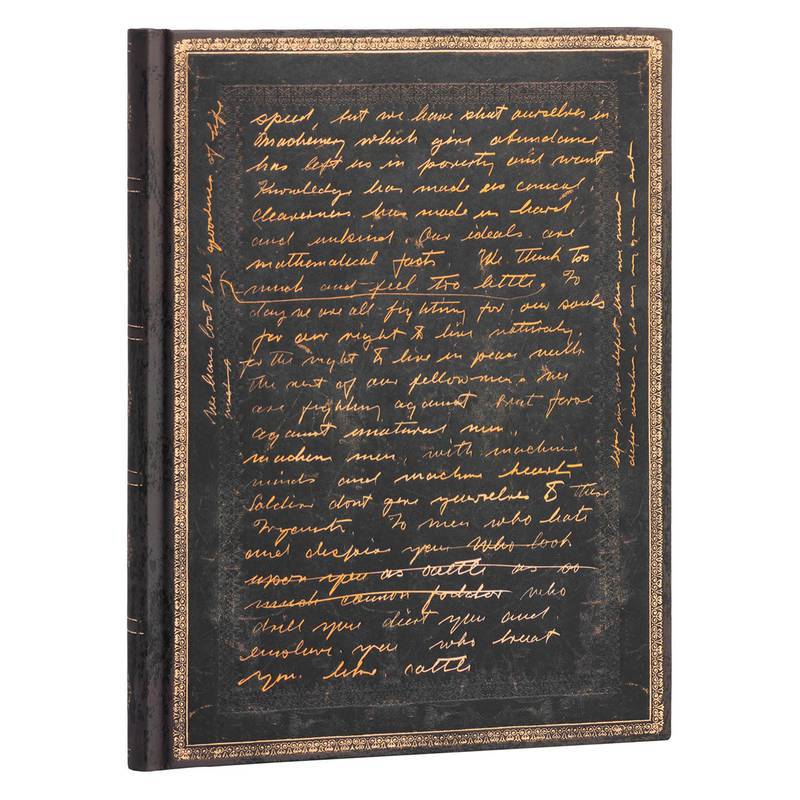 speed, but we have shut ourselves in
Machinery which give abundance
has left us in poverty and want
Knowledge has made us cynical,
cleaverness has made us hard
and unkind. Our ideals are
mathematical facts. We think too
much and feel too little. To
day we are all fighting for our souls
for our right to live naturaly,
for the right to live in peace with
the rest of our fellowmen. We
are fighting against brut force
against unatural men,
machen men, with machine
minds and machine hearts
Soldiers dont give yourselves to these
Tryants. To men who hate
and despise you who look
upon you as cattle as so
much cannon fodder who
drill you diet you and
enslave you who treat
you like cattle
We have lost the goodness of life